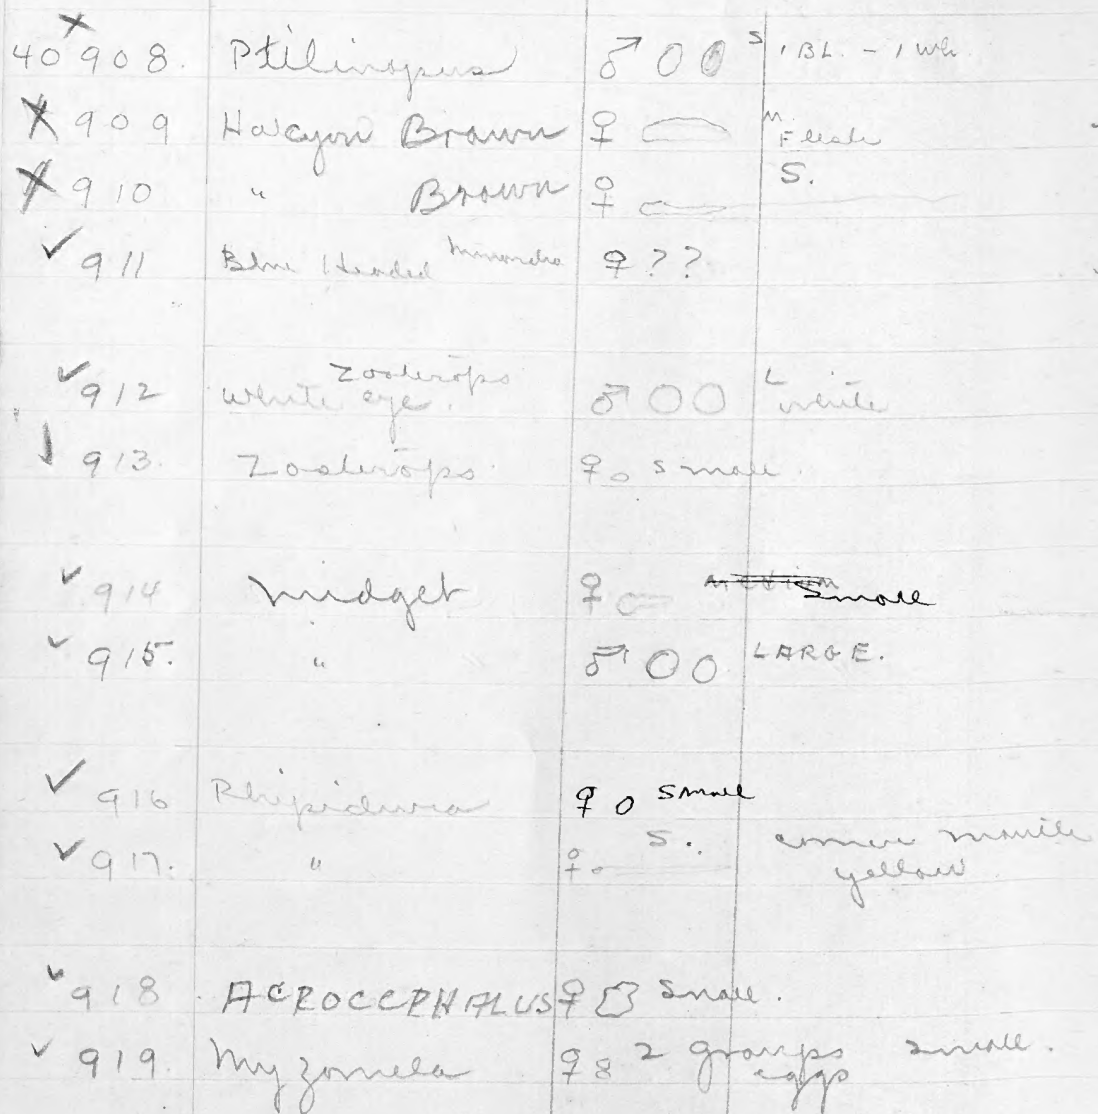 40908. Ptilinopus ♂ S 1 BL. - 1 wh.
909 Halcyon Brown ♀ M.
910 " Brown ♀ S.
911 Blue Headed ♀ ??
912 White eye. Zosterops ♂ L white
913. Zosterops. ♀ small.
914 Midget ♀ medium small
915. " ♂ LARGE.
916 Rhipidura ♀ small
917. " ♀ S.
yellow
918 ACROCEPHALUS ♀ small.
919. Myzomela ♀ 2 groups small.
eggs